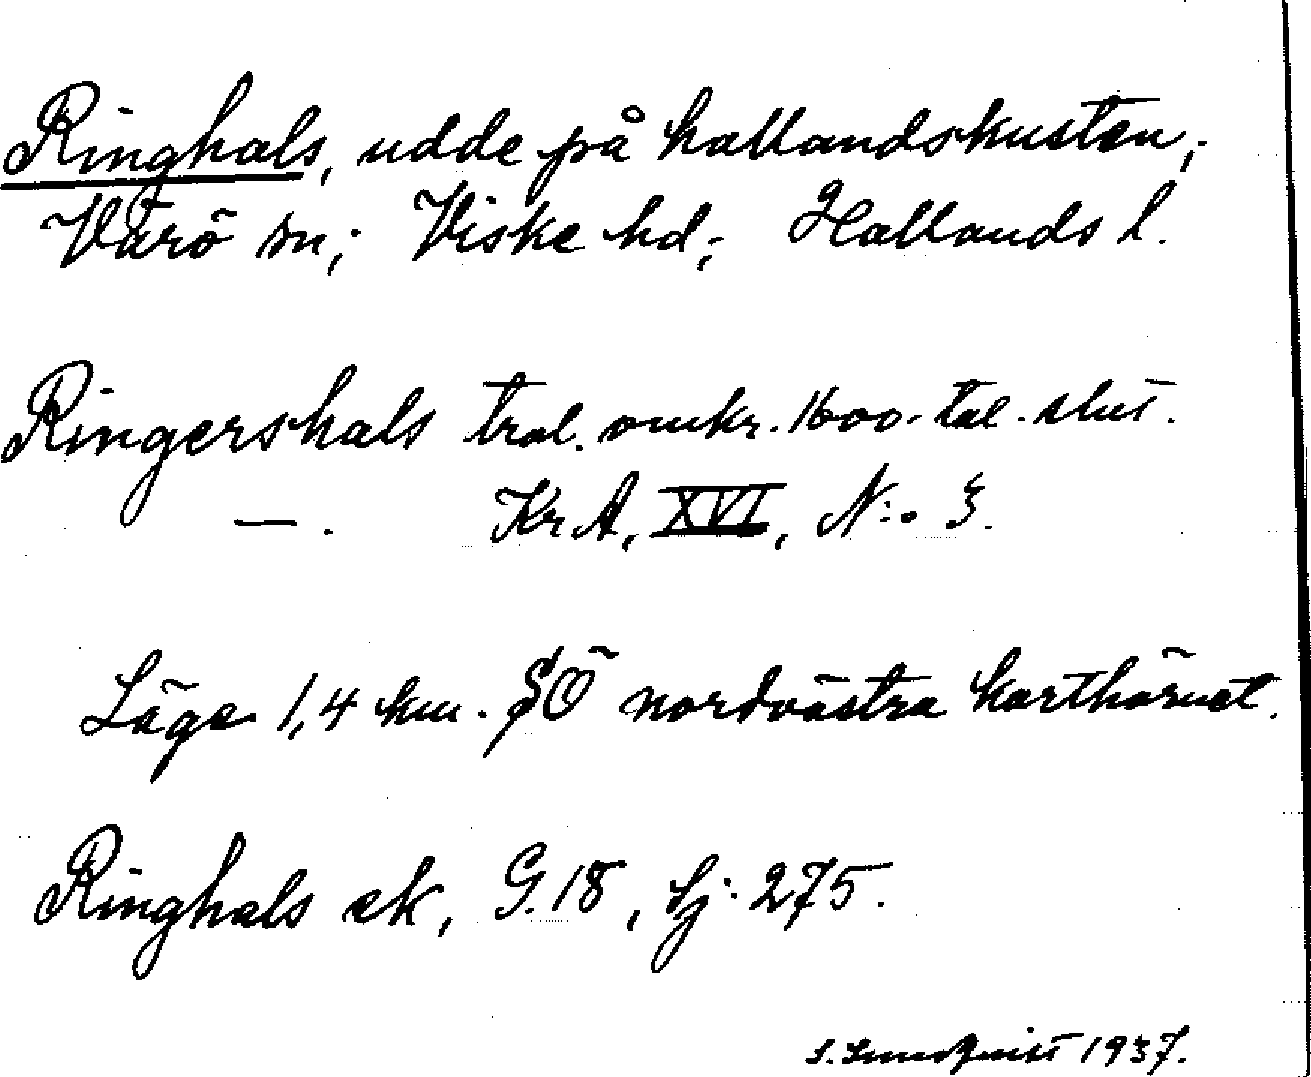 Ringhals, udde på hallandskusten;
Värö sn; Viske hd; Hallands l.
Ringershals trol. omkr. 1600-tal. slut.
—. KrA, XVI, N:o 3.
Läge 1,4 km. SÖ nordvästra karthörnet.
Ringhals ek, G. 18, Sj: 275.
S. Lundqvist 1937.